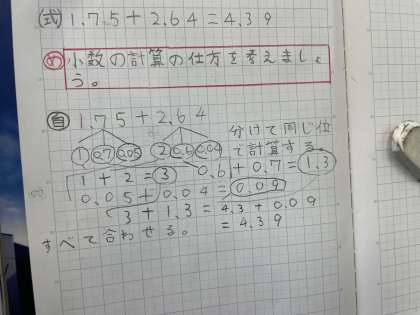 (式) 1.75+2.64=4.39
め 小数の計算の仕方を考えましょ
う。
自 1.75+2.64
分けて同じ位
で計算する。
1 0.7 0.05 2 0.6 0.04
1+2=3 0.6+0.7=1.3
0.05+0.04=0.09
3+1.3=4.3+0.09
=4.39
すべて合わせる。